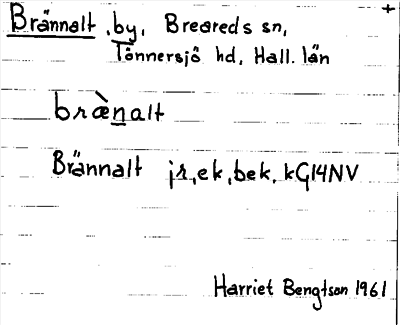 Brännalt, by, Breareds sn,
Tönnersjö hd, Hall. län
brànalt
Brännalt jr, ek, bek. kG14NV
Harriet Bengtson 1961